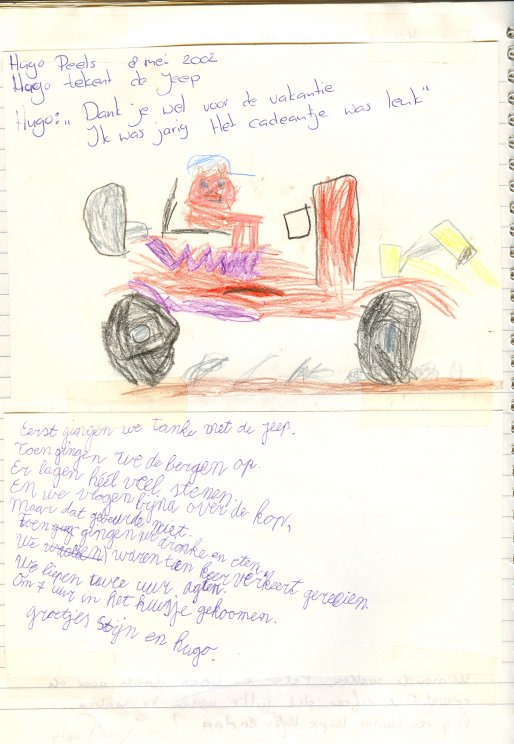 Hugo Peels 8 mei 2002
Hugo tekent de Jeep
Hugo: „ Dank je wel voor de vakantie
Ik was jarig Het cadeautje was leuk"
Eerst gingen we tanke met de jeep.
Toen gingen we de bergen op.
Er lagen héél veel stenen.
En we vlogen bijna over de kop,
maar dat gebeurde niet.
toen gingen we dronke en eten.
We waren tien keer verkeert gereeien.
We liepen twee uur agter.
Om 7 uur in het huisje gekoomen.
groetjes Stijn en hugo.